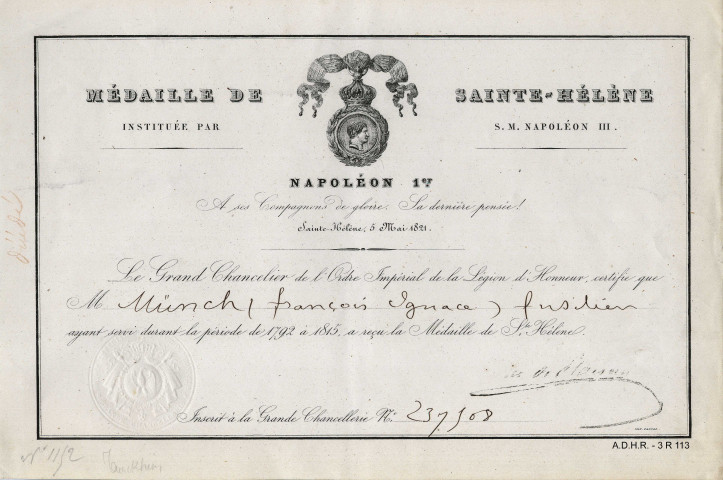 MÉDAILLE DE SAINTE-HÉLÈNE
INSTITUÉE PAR S. M. NAPOLÉON III.
NAPOLÉON 1er
A ses Compagnons de gloire. Sa dernière pensée!
Sainte-Hélène, 5 Mai 1821.
Le Grand Chancelier de l'Ordre Impérial de la Légion d'Honneur, certifie que
M Münch (françois Ignace) fusilier
ayant servi durant la période de 1792 à 1815, a reçu la Médaille de Ste Hélène.
Inscrit à la Grande Chancellerie No: 237508
A.D.H.R. - 3 R 113
décédé
No 1152